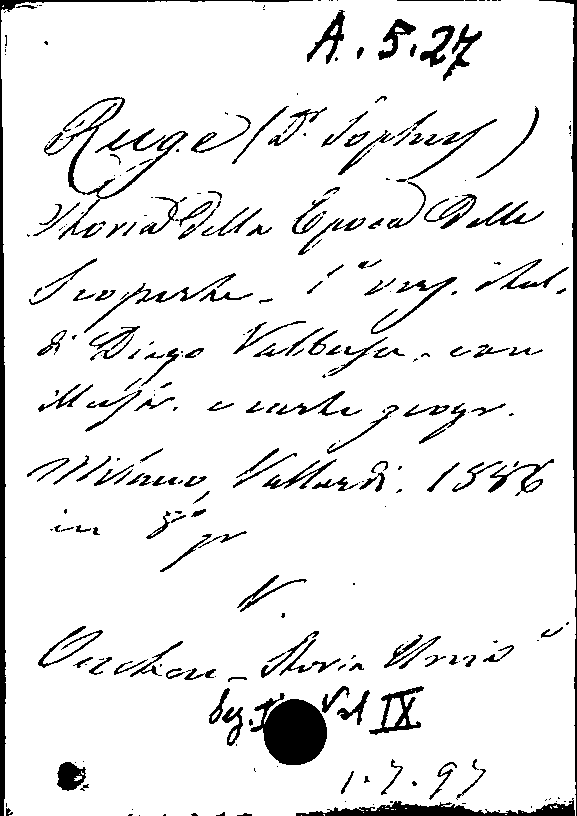 A. 5. 27
Ruge (Dr. Sophus)
Storia della Epoca delle
Scoperte - 1a vers. ital.
di Diego Valbusa, con
illustr. e carte geogr.
Milano, Vallardi. 1886
in 8° gr
V.
Oncken - Storia Univ
Sez. Vol IX
1. 7. 97